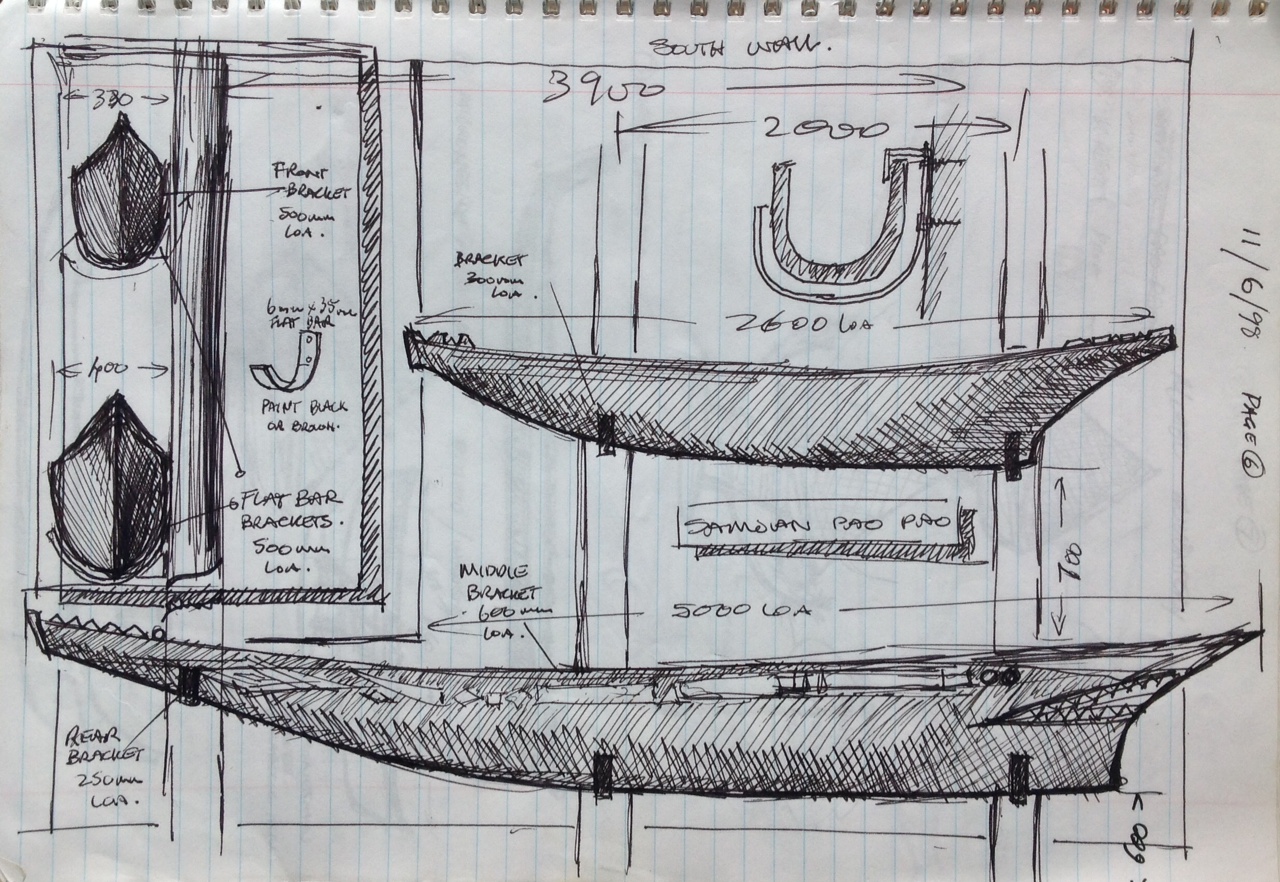 SOUTH WALL.
3900
2000
330
FRONT
BRACKET
500mm
LOA.
BRACKET
300mm
LOA.
6mm x 35mm
FLAT BAR
2600 LOA
400
PAINT BLACK
OR BROWN.
FLAT BAR
BRACKETS.
500mm
LOA.
SAMOAN PAO PAO
MIDDLE
BRACKET
600mm
LOA.
5000 LOA
700
REAR
BRACKET
250mm
LOA.
600
11/6/98. PAGE 6